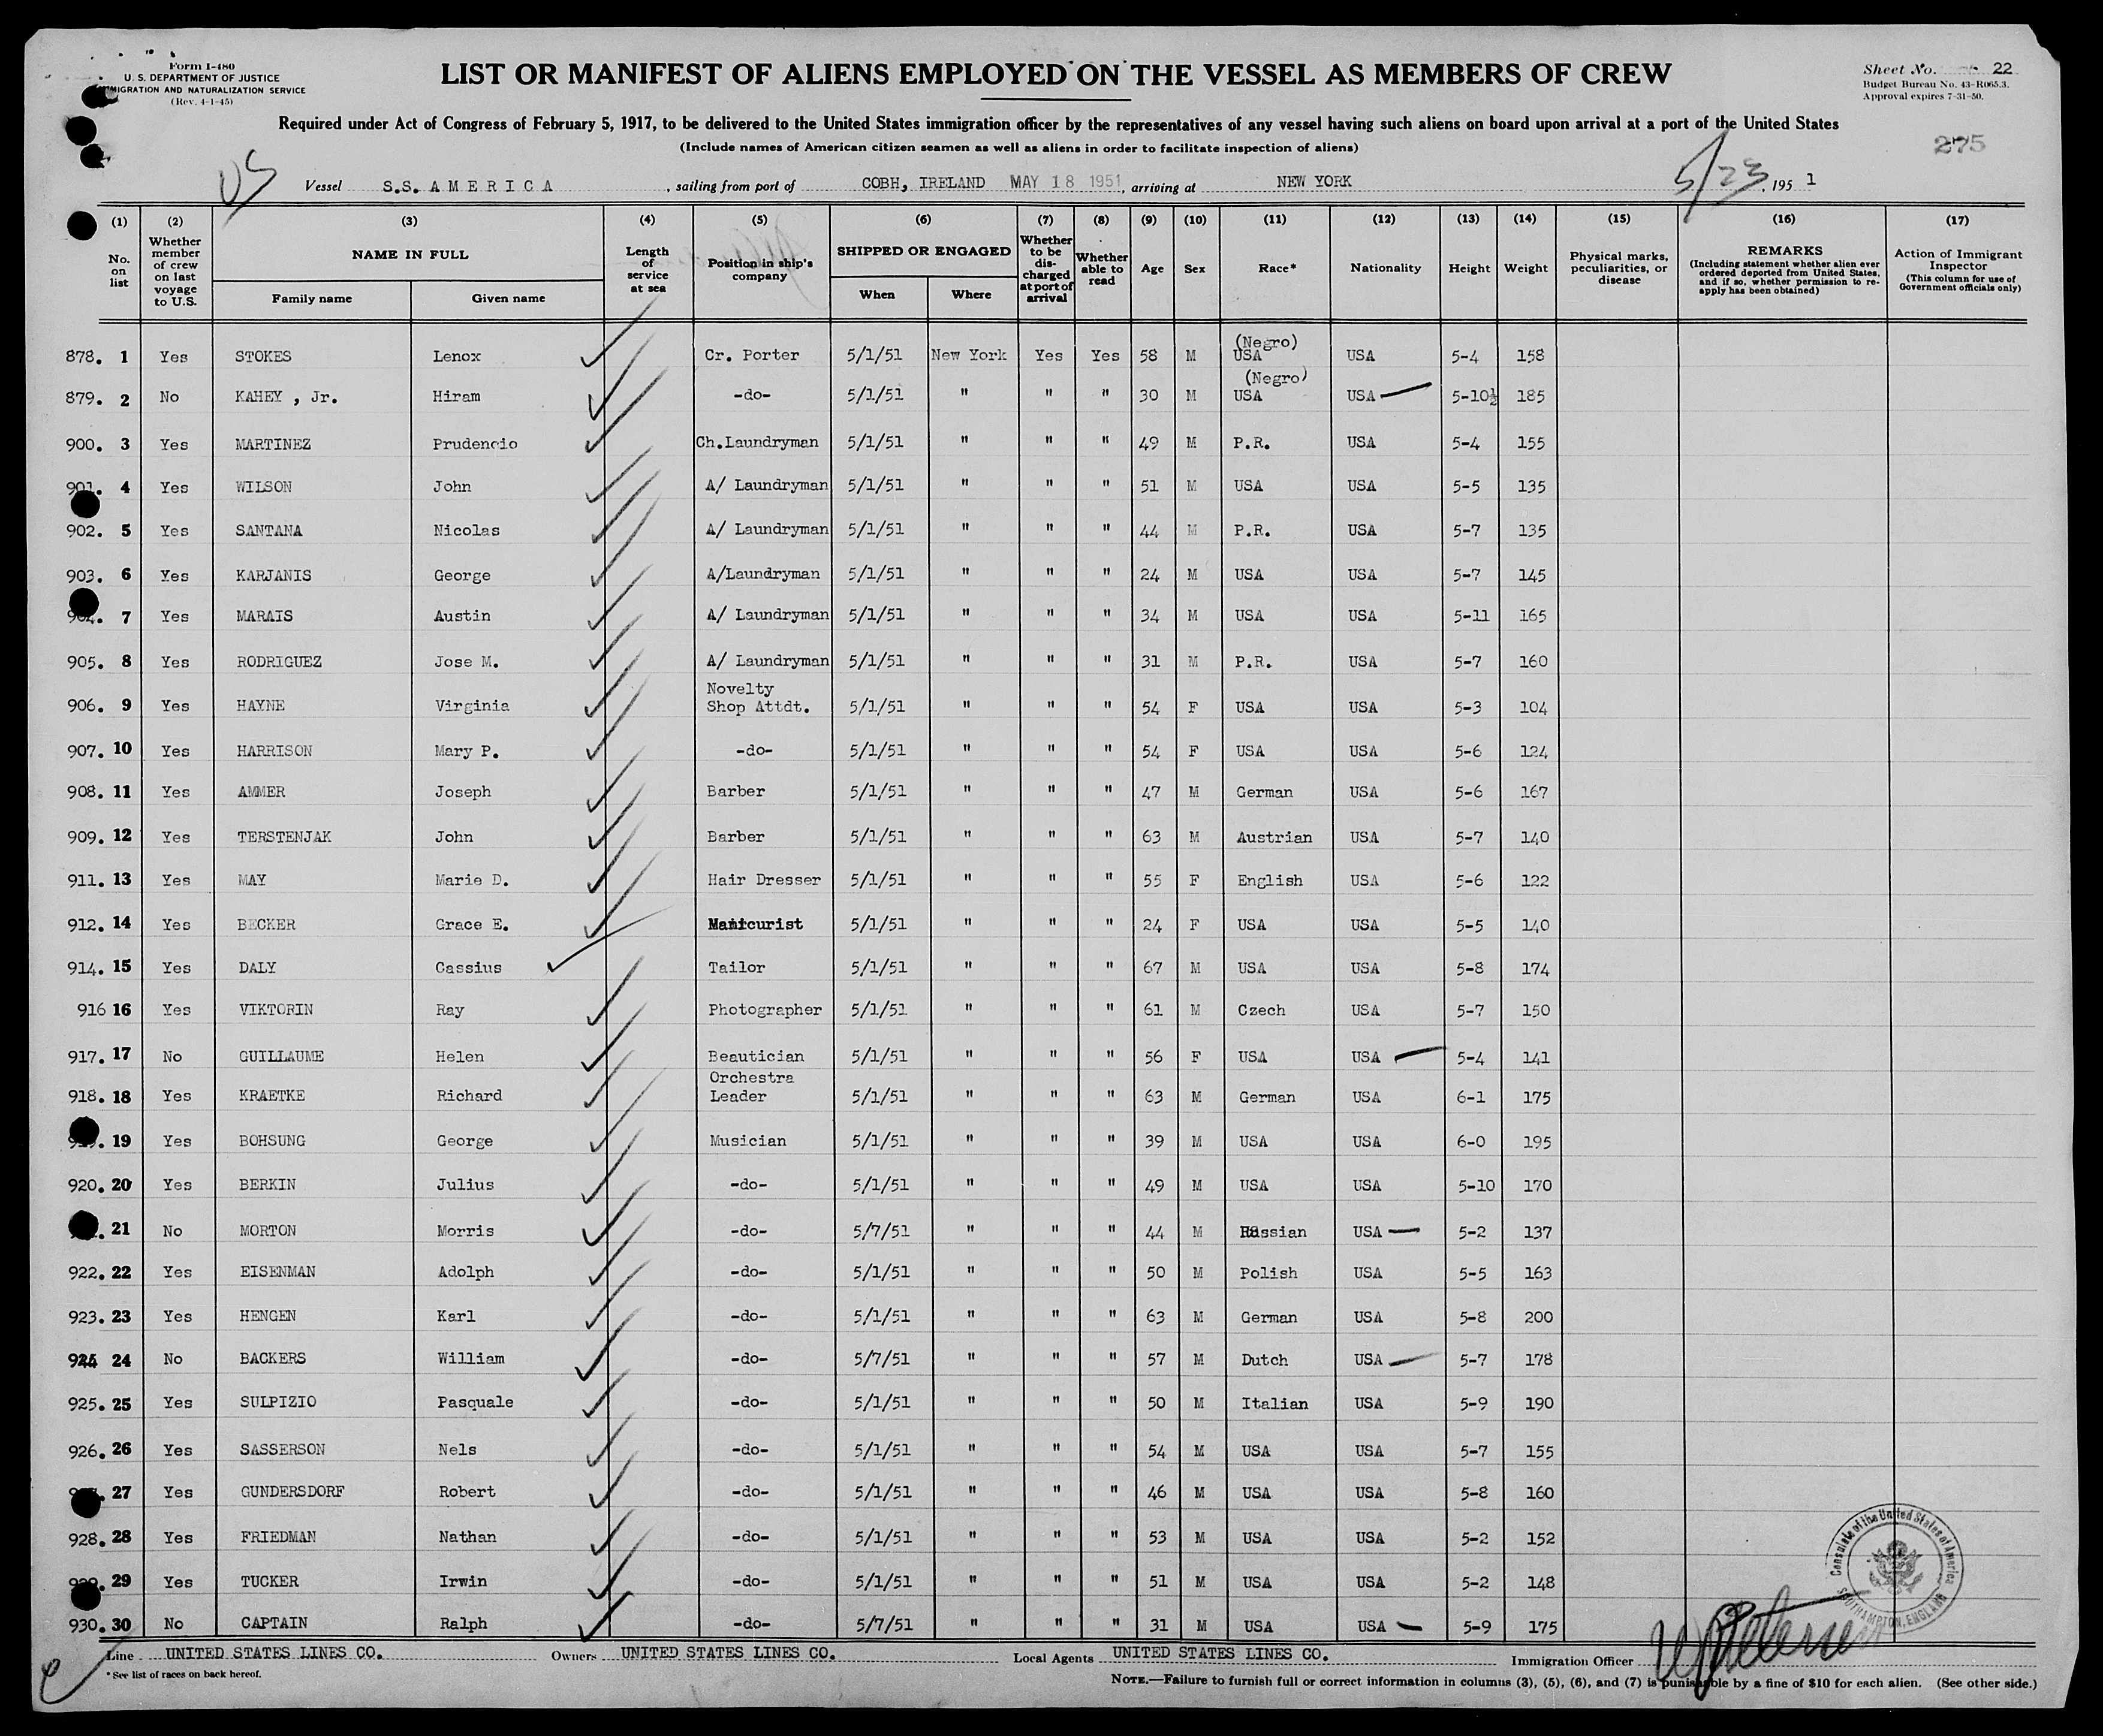 Form I-480
U. S. DEPARTMENT OF JUSTICE
IMMIGRATION AND NATURALIZATION SERVICE
(Rev. 4-1-45)
LIST OR MANIFEST OF ALIENS EMPLOYED ON THE VESSEL AS MEMBERS OF CREW
Sheet No. 22
Budget Bureau No. 43-R065.3.
Approval expires 7-31-50.
Required under Act of Congress of February 5, 1917, to be delivered to the United States immigration officer by the representatives of any vessel having such aliens on board upon arrival at a port of the United States
(Include names of American citizen seamen as well as aliens in order to facilitate inspection of aliens)
275
US Vessel S.S. AMERICA, sailing from port of COBH, IRELAND MAY 18 1951, arriving at NEW YORK 5/23, 1951
(1) (2) (3) (4) (5) (6) (7) (8) (9) (10) (11) (12) (13) (14) (15) (16) (17)
No. on list
Whether member of crew on last voyage to U.S.
NAME IN FULL
Family name
Given name
Length of service at sea
Position in ship's company
SHIPPED OR ENGAGED
When
Where
Whether to be discharged at port of arrival
Whether able to read
Age
Sex
Race*
Nationality
Height
Weight
Physical marks, peculiarities, or disease
REMARKS
(Including statement whether alien ever ordered deported from United States, and if so, whether permission to reapply has been obtained)
Action of Immigrant Inspector
(This column for use of Government officials only)
878. 1 Yes STOKES Lenox Cr. Porter 5/1/51 New York Yes Yes 58 M (Negro) USA USA 5-4 158
879. 2 No KAHEY , Jr. Hiram -do- 5/1/51 " " " 30 M (Negro) USA USA 5-10½ 185
900. 3 Yes MARTINEZ Prudencio Ch.Laundryman 5/1/51 " " " 49 M P.R. USA 5-4 155
901. 4 Yes WILSON John A/ Laundryman 5/1/51 " " " 51 M USA USA 5-5 135
902. 5 Yes SANTANA Nicolas A/ Laundryman 5/1/51 " " " 44 M P.R. USA 5-7 135
903. 6 Yes KARJANIS George A/Laundryman 5/1/51 " " " 24 M USA USA 5-7 145
904. 7 Yes MARAIS Austin A/ Laundryman 5/1/51 " " " 34 M USA USA 5-11 165
905. 8 Yes RODRIGUEZ Jose M. A/ Laundryman 5/1/51 " " " 31 M P.R. USA 5-7 160
906. 9 Yes HAYNE Virginia Novelty Shop Attdt. 5/1/51 " " " 54 F USA USA 5-3 104
907. 10 Yes HARRISON Mary P. -do- 5/1/51 " " " 54 F USA USA 5-6 124
908. 11 Yes AMMER Joseph Barber 5/1/51 " " " 47 M German USA 5-6 167
909. 12 Yes TERSTENJAK John Barber 5/1/51 " " " 63 M Austrian USA 5-7 140
911. 13 Yes MAY Marie D. Hair Dresser 5/1/51 " " " 55 F English USA 5-6 122
912. 14 Yes BECKER Grace E. Manicurist 5/1/51 " " " 24 F USA USA 5-5 140
914. 15 Yes DALY Cassius Tailor 5/1/51 " " " 67 M USA USA 5-8 174
916 16 Yes VIKTORIN Ray Photographer 5/1/51 " " " 61 M Czech USA 5-7 150
917. 17 No GUILLAUME Helen Beautician 5/1/51 " " " 56 F USA USA 5-4 141
918. 18 Yes KRAETKE Richard Orchestra Leader 5/1/51 " " " 63 M German USA 6-1 175
19 Yes BOHSUNG George Musician 5/1/51 " " " 39 M USA USA 6-0 195
920. 20 Yes BERKIN Julius -do- 5/1/51 " " " 49 M USA USA 5-10 170
21 No MORTON Morris -do- 5/7/51 " " " 44 M Russian USA 5-2 137
922. 22 Yes EISENMAN Adolph -do- 5/1/51 " " " 50 M Polish USA 5-5 163
923. 23 Yes HENGEN Karl -do- 5/1/51 " " " 63 M German USA 5-8 200
924 24 No BACKERS William -do- 5/7/51 " " " 57 M Dutch USA 5-7 178
925. 25 Yes SULPIZIO Pasquale -do- 5/1/51 " " " 50 M Italian USA 5-9 190
926. 26 Yes SASSERSON Nels -do- 5/1/51 " " " 54 M USA USA 5-7 155
27 Yes GUNDERSDORF Robert -do- 5/1/51 " " " 46 M USA USA 5-8 160
928. 28 Yes FRIEDMAN Nathan -do- 5/1/51 " " " 53 M USA USA 5-2 152
929. 29 Yes TUCKER Irwin -do- 5/1/51 " " " 51 M USA USA 5-2 148
930. 30 No CAPTAIN Ralph -do- 5/7/51 " " " 31 M USA USA 5-9 175
Consulate of the United States of America
SOUTHAMPTON, ENGLAND
Line UNITED STATES LINES CO. Owners UNITED STATES LINES CO. Local Agents UNITED STATES LINES CO. Immigration Officer
* See list of races on back hereof.
NOTE.—Failure to furnish full or correct information in columns (3), (5), (6), and (7) is punishable by a fine of $10 for each alien. (See other side.)